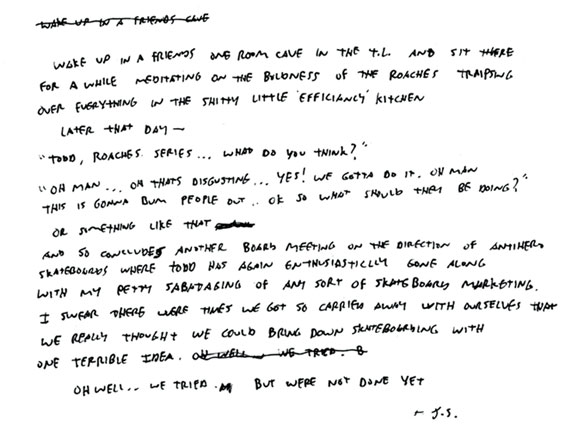 WAKE UP IN A FRIENDS CAVE
WAKE UP IN A FRIENDS ONE ROOM CAVE IN THE T.L. AND SIT THERE
FOR A WHILE MEDITATING ON THE BOLDNESS OF THE ROACHES TRAIPSING
OVER EVERYTHING IN THE SHITTY LITTLE 'EFFICIANCY' KITCHEN
LATER THAT DAY —
"TODD, ROACHES SERIES... WHAT DO YOU THINK?"
"OH MAN... OH THATS DISGUSTING... YES! WE GOTTA DO IT. OH MAN
THIS IS GONNA BUM PEOPLE OUT.. OK SO WHAT SHOULD THEY BE DOING?"
OR SOMETHING LIKE THAT
AND SO CONCLUDES ANOTHER BOARD MEETING ON THE DIRECTION OF ANTIHERO
SKATEBOARDS WHERE TODD HAS AGAIN ENTHUSIASTICLLY GONE ALONG
WITH MY PETTY SABATAGING OF ANY SORT OF SKATEBOARD MARKETING.
I SWEAR THERE WERE TIMES WE GOT SO CARRIED AWAY WITH OURSELVES THAT
WE REALLY THOUGHT WE COULD BRING DOWN SKATEBOARDING WITH
ONE TERRIBLE IDEA. OH WELL... WE TRIED. B
OH WELL... WE TRIED. BUT WERE NOT DONE YET
- J.S.